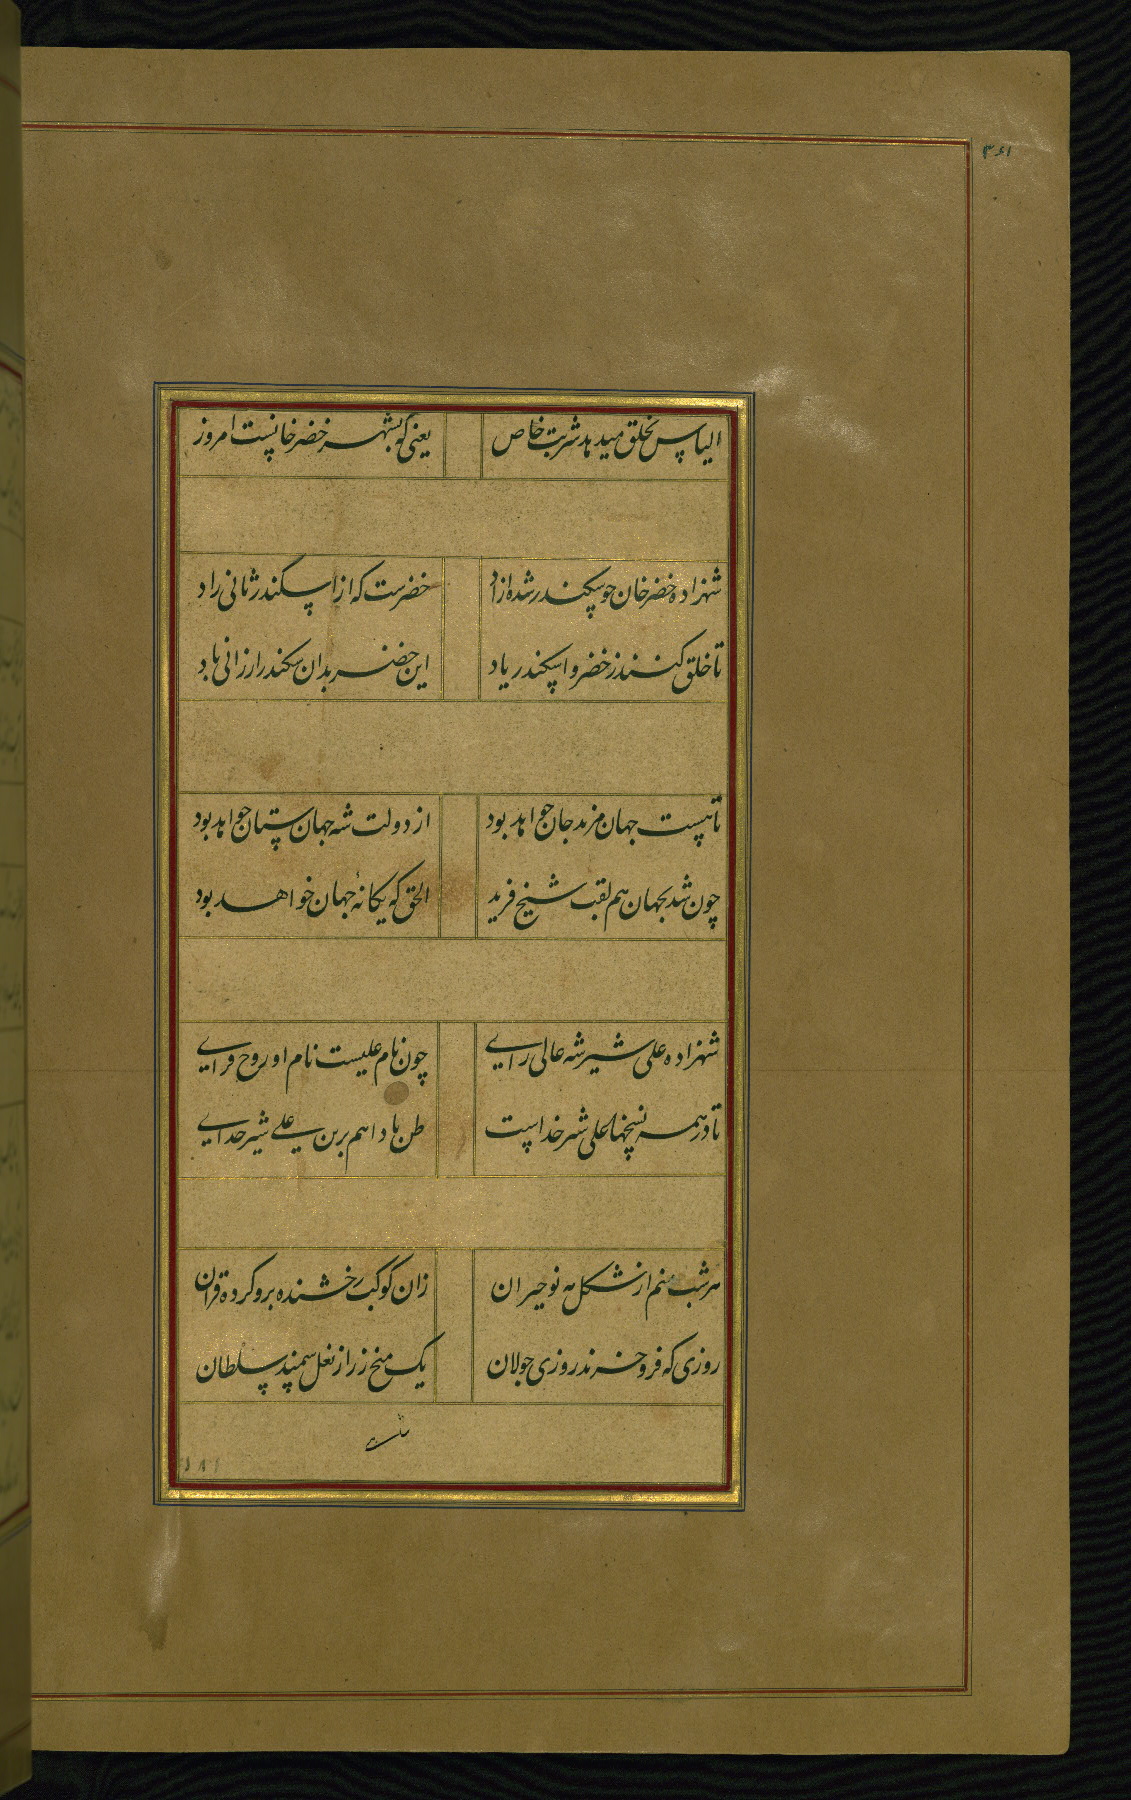 ۳۶۱
الیاس بخلق میدهد شربت خاص یعنی که بشهر خضر خانیست امروز
شهزاده خضر خان چو سکندر شده ازاد خضرست که از اسکندر ثانی زاد
تا خلق کنند ز خضر و اسکندر یاد این خضر بدان سکندر ارزانی باد
تا هست جهان مزید جان خواهد بود از دولت شه جهان ستان خواهد بود
چون شد بجهان هم لقب شیخ فرید الحق که یکانهٔ جهان خواهد بود
شهزاده علی شیر شه عالی رای چون نام علیست نام او روح فزای
تا در همه نسخها علی شیر خداست طن باد اهم برین علی شیر خدای
هر شب منم از شکل مه نو حیران زان کوکب رخشنده برو کرده قران
روزی که فرو خرند روزی جولان یک میخ زر از نعل سمند سلطان